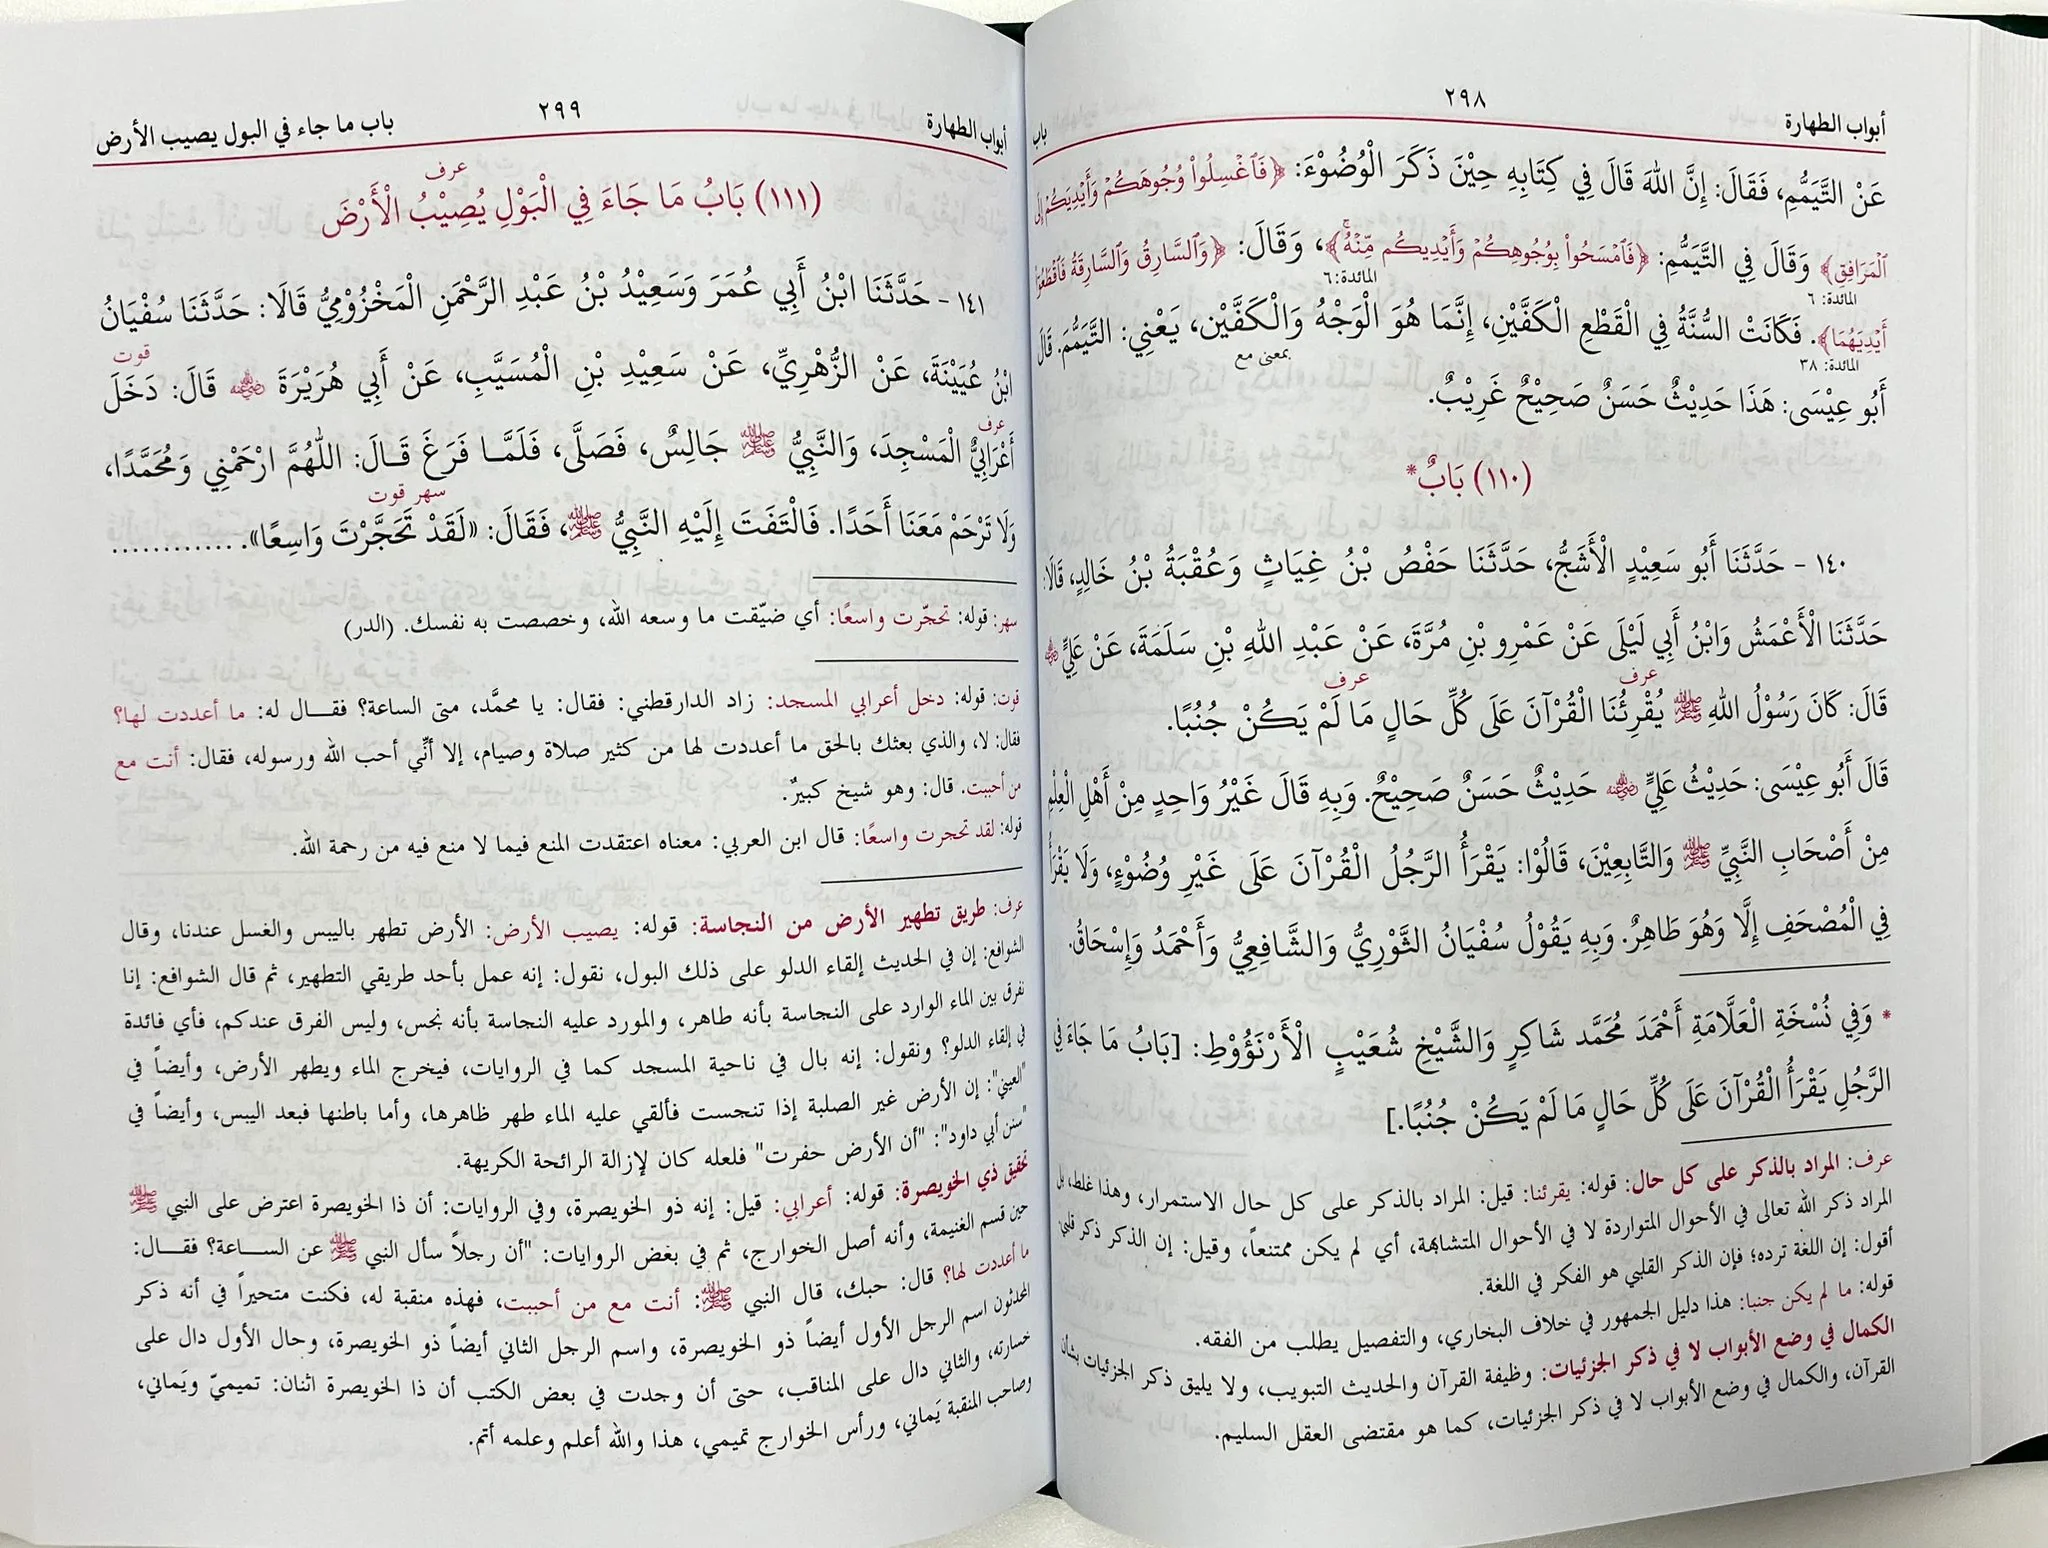 أبواب الطهارة ٢٩٨ باب
عَنْ التَّيَمُّمِ، فَقَالَ: إِنَّ اللهَ قَالَ فِي كِتَابِهِ حِيْنَ ذَكَرَ الْوُضُوْءَ: ﴿فَٱغْسِلُواْ وُجُوهَكُمْ وَأَيْدِيَكُمْ إِلَى
ٱلْمَرَافِقِ﴾ وَقَالَ فِي التَّيَمُّمِ: ﴿فَٱمْسَحُواْ بِوُجُوهِكُمْ وَأَيْدِيكُم مِّنْهُ﴾، وَقَالَ: ﴿وَٱلسَّارِقُ وَٱلسَّارِقَةُ فَٱقْطَعُوٓاْ
المائدة: ٦ المائدة: ٦
أَيْدِيَهُمَا﴾. فَكَانَتْ السُّنَّةُ فِي الْقَطْعِ الْكَفَّيْنِ، إِنَّمَا هُوَ الْوَجْهُ وَالْكَفَّيْنِ، يَعْنِي: التَّيَمُّم. قَالَ
المائدة: ٣٨ بمعنى مع
أَبُو عِيْسَى: هَذَا حَدِيْثٌ حَسَنٌ صَحِيْحٌ غَرِيْبٌ.
(١١٠) بَابٌ*
١٤٠ - حَدَّثَنَا أَبُو سَعِيْدٍ الْأَشَجُّ، حَدَّثَنَا حَفْصُ بْنُ غِيَاثٍ وَعُقْبَةُ بْنُ خَالِدٍ، قَالَا:
حَدَّثَنَا الْأَعْمَشُ وَابْنُ أَبِي لَيْلَى عَنْ عَمْرِو بْنِ مُرَّةَ، عَنْ عَبْدِ اللهِ بْنِ سَلَمَةَ، عَنْ عَلِيٍّ ؓ
عرف عرف
قَالَ: كَانَ رَسُوْلُ اللهِ ﷺ يُقْرِئُنَا الْقُرْآنَ عَلَى كُلِّ حَالٍ مَا لَمْ يَكُنْ جُنُبًا.
قَالَ أَبُو عِيْسَى: حَدِيْثُ عَلِيٍّ ؓ حَدِيْثٌ حَسَنٌ صَحِيْحٌ. وَبِهِ قَالَ غَيْرُ وَاحِدٍ مِنْ أَهْلِ الْعِلْمِ
مِنْ أَصْحَابِ النَّبِيِّ ﷺ وَالتَّابِعِيْنَ، قَالُوْا: يَقْرَأُ الرَّجُلُ الْقُرْآنَ عَلَى غَيْرِ وُضُوْءٍ، وَلَا يَقْرَأُ
فِي الْمُصْحَفِ إِلَّا وَهُوَ طَاهِرٌ. وَبِهِ يَقُوْلُ سُفْيَانُ الثَّوْرِيُّ وَالشَّافِعِيُّ وَأَحْمَدُ وَإِسْحَاقُ.
* وَفِي نُسْخَةِ الْعَلَّامَةِ أَحْمَدَ مُحَمَّد شَاكِرٍ وَالشَّيْخِ شُعَيْبٍ الْأَرْنَؤُوْطِ: [بَابُ مَا جَاءَ فِي
الرَّجُلِ يَقْرَأُ الْقُرْآنَ عَلَى كُلِّ حَالٍ مَا لَمْ يَكُنْ جُنُبًا.]
عرف: المراد بالذكر على كل حال: قوله: يقرئنا: قيل: المراد بالذكر على كل حال الاستمرار، وهذا غلط، بل
المراد ذكر الله تعالى في الأحوال المتواردة لا في الأحوال المتشابهة، أي لم يكن ممتنعاً، وقيل: إن الذكر ذكر قلبي
أقول: إن اللغة ترده؛ فإن الذكر القلبي هو الفكر في اللغة.
قوله: ما لم يكن جنبا: هذا دليل الجمهور في خلاف البخاري، والتفصيل يطلب من الفقه.
الكمال في وضع الأبواب لا في ذكر الجزئيات: وظيفة القرآن والحديث التبويب، ولا يليق ذكر الجزئيات بشأن
القرآن، والكمال في وضع الأبواب لا في ذكر الجزئيات، كما هو مقتضى العقل السليم.
أبواب الطهارة ٢٩٩ باب ما جاء في البول يصيب الأرض
عرف
(١١١) بَابُ مَا جَاءَ فِي الْبَوْلِ يُصِيْبُ الْأَرْضَ
١٤١ - حَدَّثَنَا ابْنُ أَبِي عُمَرَ وَسَعِيْدُ بْنُ عَبْدِ الرَّحْمَنِ الْمَخْزُوْمِيُّ قَالَا: حَدَّثَنَا سُفْيَانُ
قوت
ابْنُ عُيَيْنَةَ، عَنْ الزُّهْرِيِّ، عَنْ سَعِيْدِ بْنِ الْمُسَيَّبِ، عَنْ أَبِي هُرَيْرَةَ ؓ قَالَ: دَخَلَ
عرف
أَعْرَابِيٌّ الْمَسْجِدَ، وَالنَّبِيُّ ﷺ جَالِسٌ، فَصَلَّى، فَلَمَّا فَرَغَ قَالَ: اللّٰهُمَّ ارْحَمْنِي وَمُحَمَّدًا،
سهر قوت
وَلَا تَرْحَمْ مَعَنَا أَحَدًا. فَالْتَفَتَ إِلَيْهِ النَّبِيُّ ﷺ، فَقَالَ: «لَقَدْ تَحَجَّرْتَ وَاسِعًا». .............
سهر: قوله: تحجّرت واسعًا: أي ضيّقت ما وسعه الله، وخصصت به نفسك. (الدر)
قوت: قوله: دخل أعرابي المسجد: زاد الدارقطني: فقال: يا محمَّد، متى الساعة؟ فقال له: ما أعددت لها؟
فقال: لا، والذي بعثك بالحق ما أعددت لها من كثير صلاة وصيام، إلا أنّي أحب الله ورسوله، فقال: أنت مع
من أحببت. قال: وهو شيخ كبيرٌ.
قوله: لقد تحجرت واسعًا: قال ابن العربي: معناه اعتقدت المنع فيما لا منع فيه من رحمة الله.
عرف: طريق تطهير الأرض من النجاسة: قوله: يصيب الأرض: الأرض تطهر باليبس والغسل عندنا، وقال
الشوافع: إن في الحديث إلقاء الدلو على ذلك البول، نقول: إنه عمل بأحد طريقي التطهير، ثم قال الشوافع: إنا
نفرق بين الماء الوارد على النجاسة بأنه طاهر، والمورد عليه النجاسة بأنه نجس، وليس الفرق عندكم، فأي فائدة
في إلقاء الدلو؟ ونقول: إنه بال في ناحية المسجد كما في الروايات، فيخرج الماء ويطهر الأرض، وأيضاً في
"العيني": إن الأرض غير الصلبة إذا تنجست فألقي عليه الماء طهر ظاهرها، وأما باطنها فبعد اليبس، وأيضاً في
"سنن أبي داود": "أن الأرض حفرت" فلعله كان لإزالة الرائحة الكريهة.
تحقيق ذي الخويصرة: قوله: أعرابي: قيل: إنه ذو الخويصرة، وفي الروايات: أن ذا الخويصرة اعترض على النبي ﷺ
حين قسم الغنيمة، وأنه أصل الخوارج، ثم في بعض الروايات: "أن رجلاً سأل النبي ﷺ عن الساعة؟ فقال:
ما أعددت لها؟ قال: حبك، قال النبي ﷺ: أنت مع من أحببت، فهذه منقبة له، فكنت متحيراً في أنه ذكر
المحدثون اسم الرجل الأول أيضاً ذو الخويصرة، واسم الرجل الثاني أيضاً ذو الخويصرة، وحال الأول دال على
خسارته، والثاني دال على المناقب، حتى أن وجدت في بعض الكتب أن ذا الخويصرة اثنان: تميميّ ويَماني،
وصاحب المنقبة يَماني، ورأس الخوارج تميمي، هذا والله أعلم وعلمه أتم.